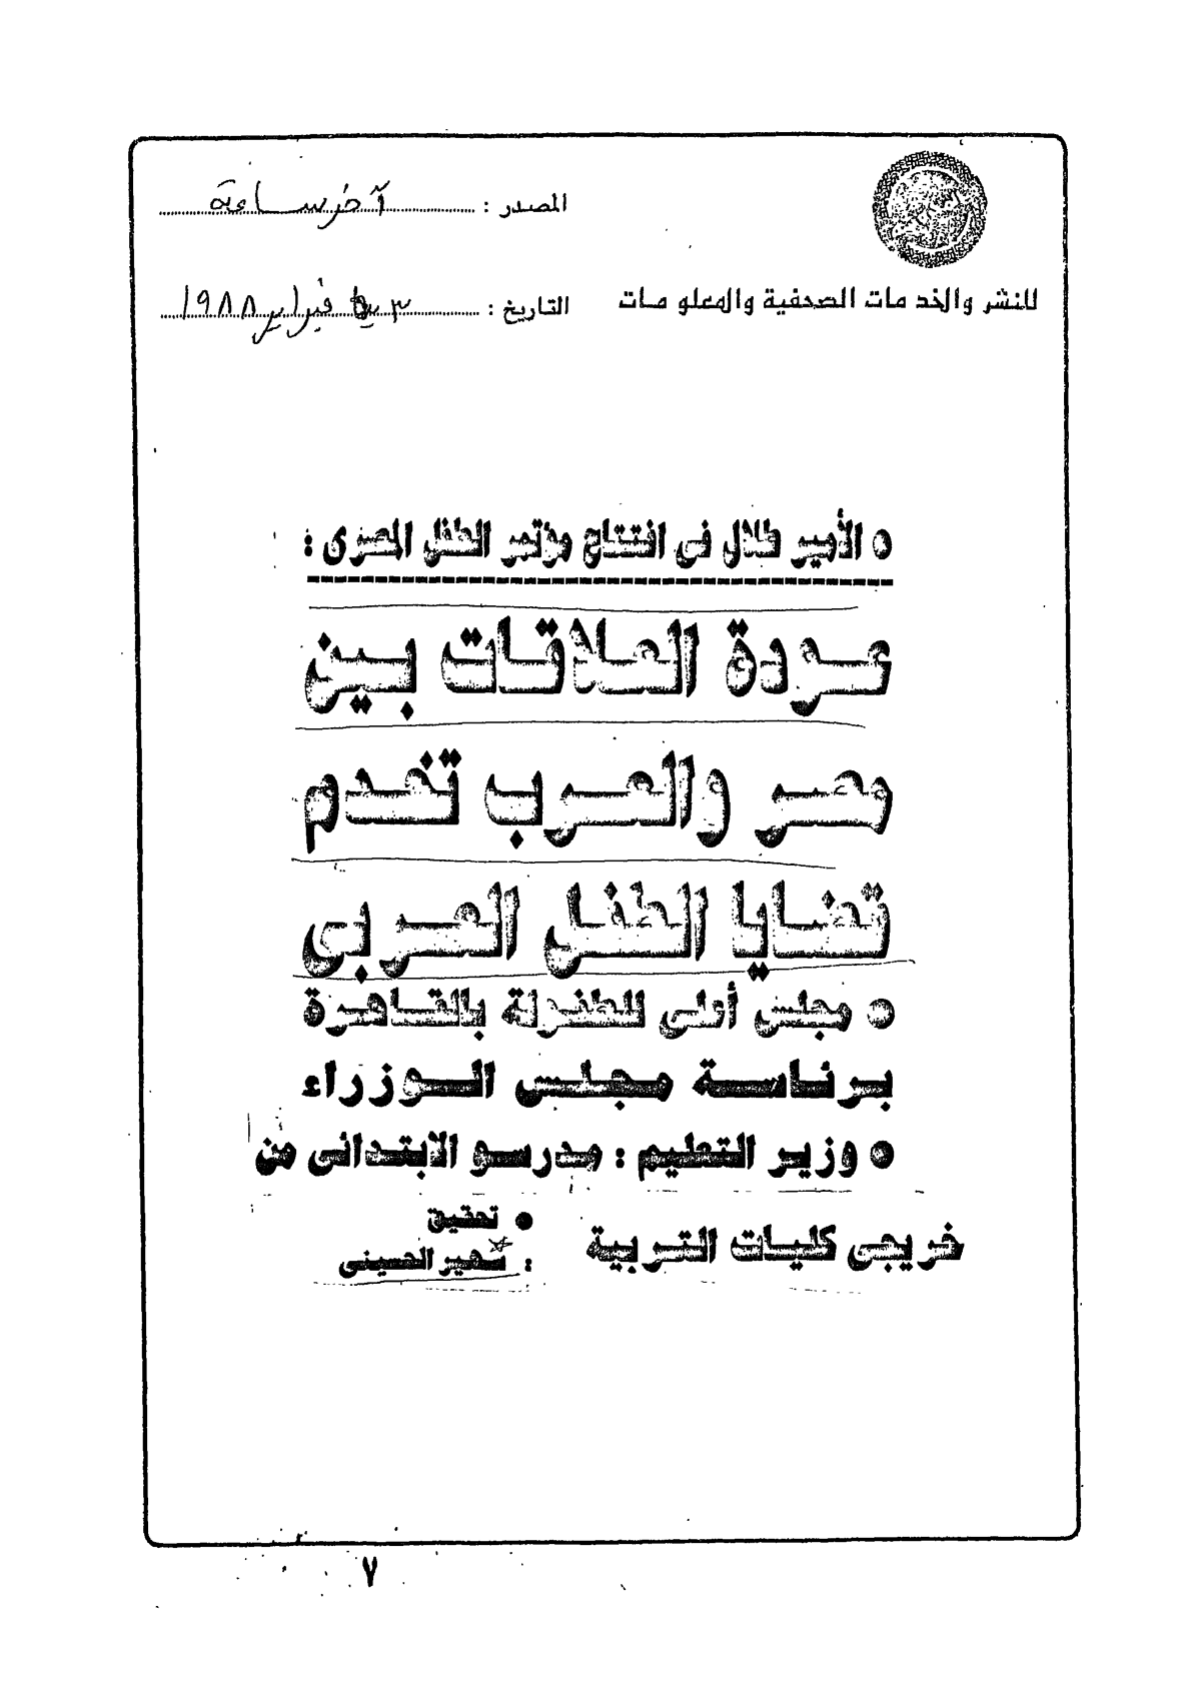 المصدر : آخر ساعة
للنشر والخد مات الصحفية والمعلو مات
التاريخ : ٣ فبراير ١٩٨٨
• الأمير طلال فى افتتاح مؤتمر الطفل المصرى :
عودة العلاقات بين
مصر والعرب تخدم
قضايا الطفل العربى
• مجلس أعلى للطفولة بالقاهرة
برئاسة مجلس الوزراء
• وزير التعليم : مدرسو الابتدائى من
خريجى كليات التربية
• تحقيق
: سهير الحسينى
٧